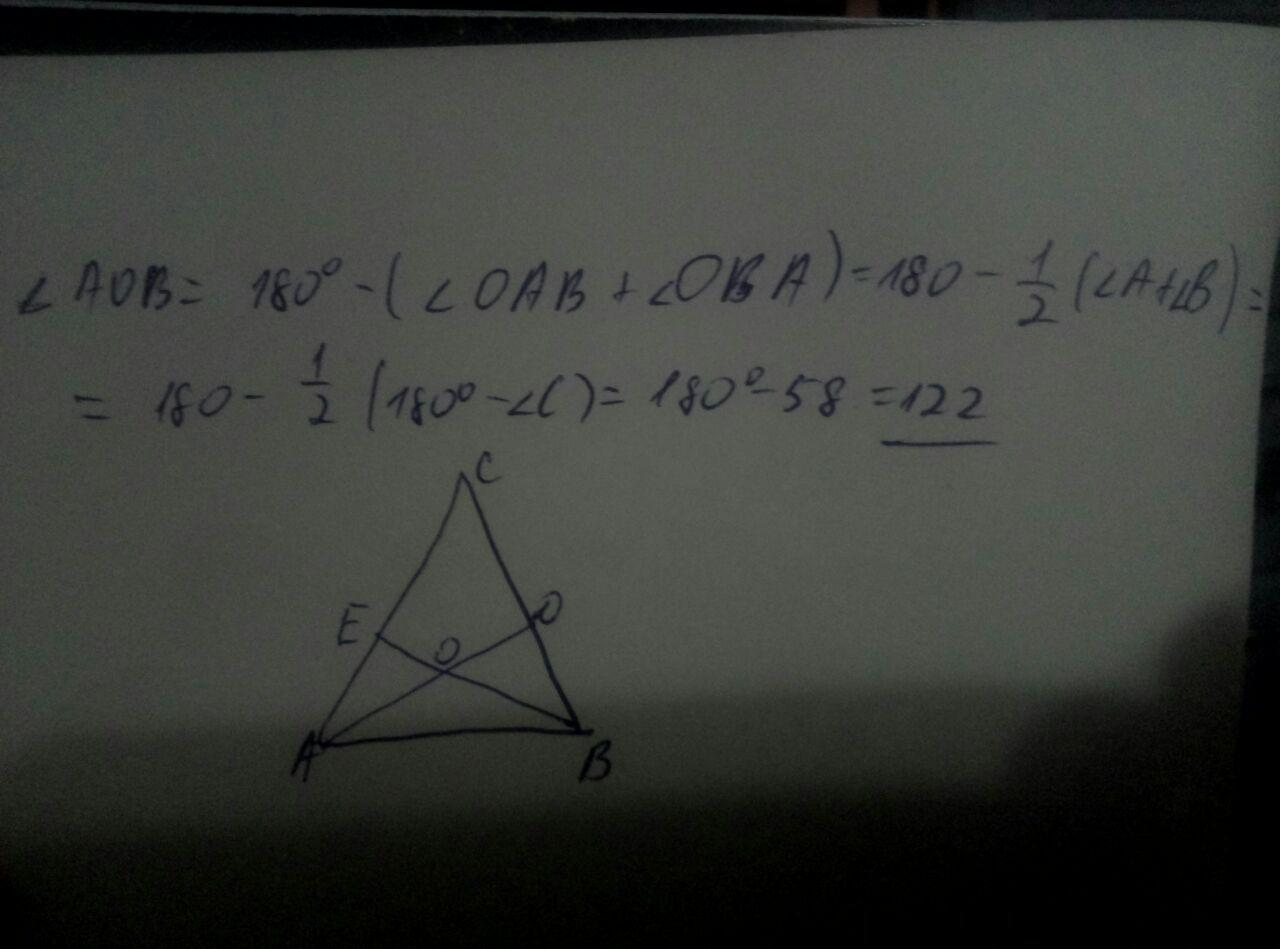 ∠AOB= 180° -(∠OAB +∠OBA)=180 - 1/2 (∠A+∠B)=
= 180- 1/2 (180° -∠C)= 180°-58 =122
C
E
D
O
A
B